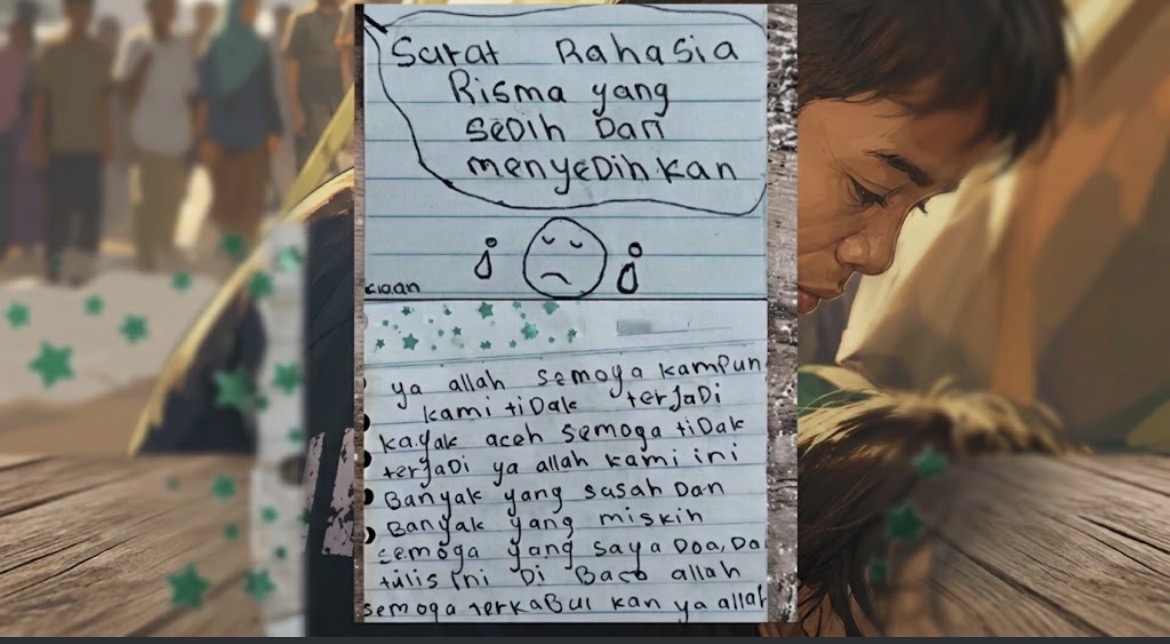 Surat Rahasia
Risma yang
seDih Dan
menyeDihkan
ya allah semoga kampun
kami tiDak terjaDi
kayak aceh semoga tiDak
terjaDi ya allah kami ini
Banyak yang sasah Dan
Banyak yang miskin
semoga yang saya Doa, Da
tulis ini Di Baca allah
semoga terkaBul kan ya allah